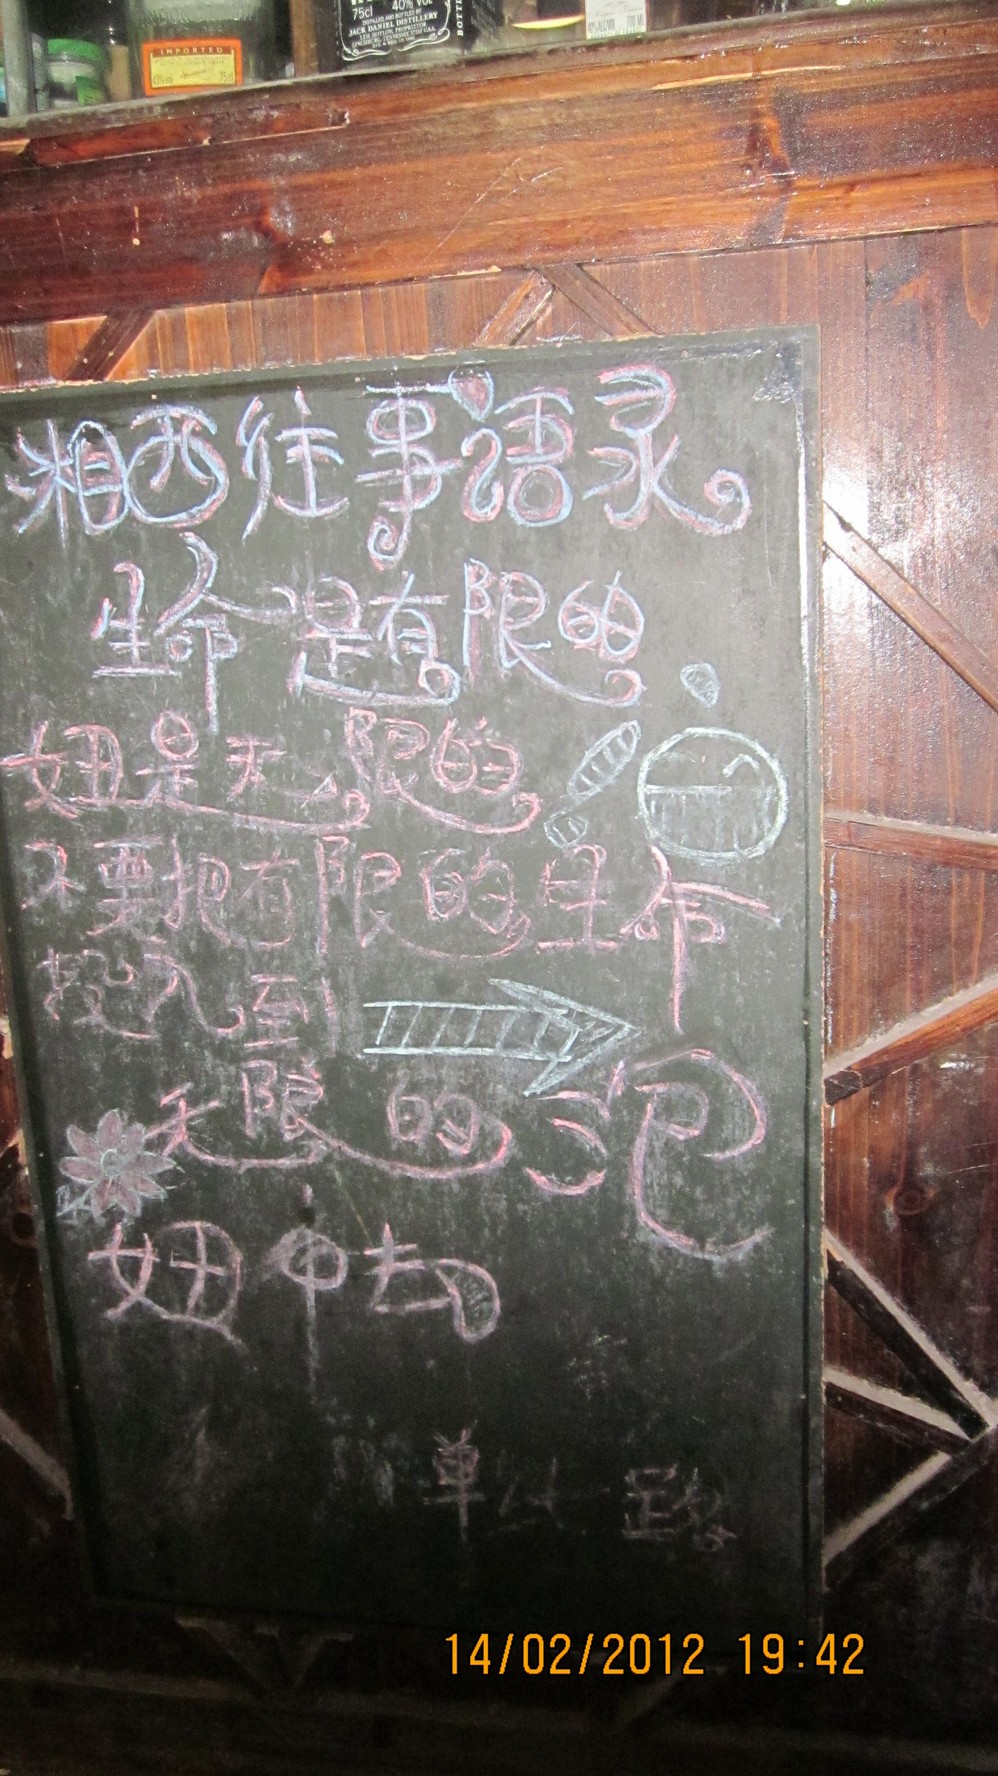 IMPORTED
75cl
75cl 40% Vol
DISTILLED AND BOTTLED BY
JACK DANIEL DISTILLERY
LEM MOTLOW, PROPRIETOR
湘西往事语录
生命是有限的
妞是无限的
不要把有限的生命
投入到
无限的泡
妞中去
14/02/2012 19:42